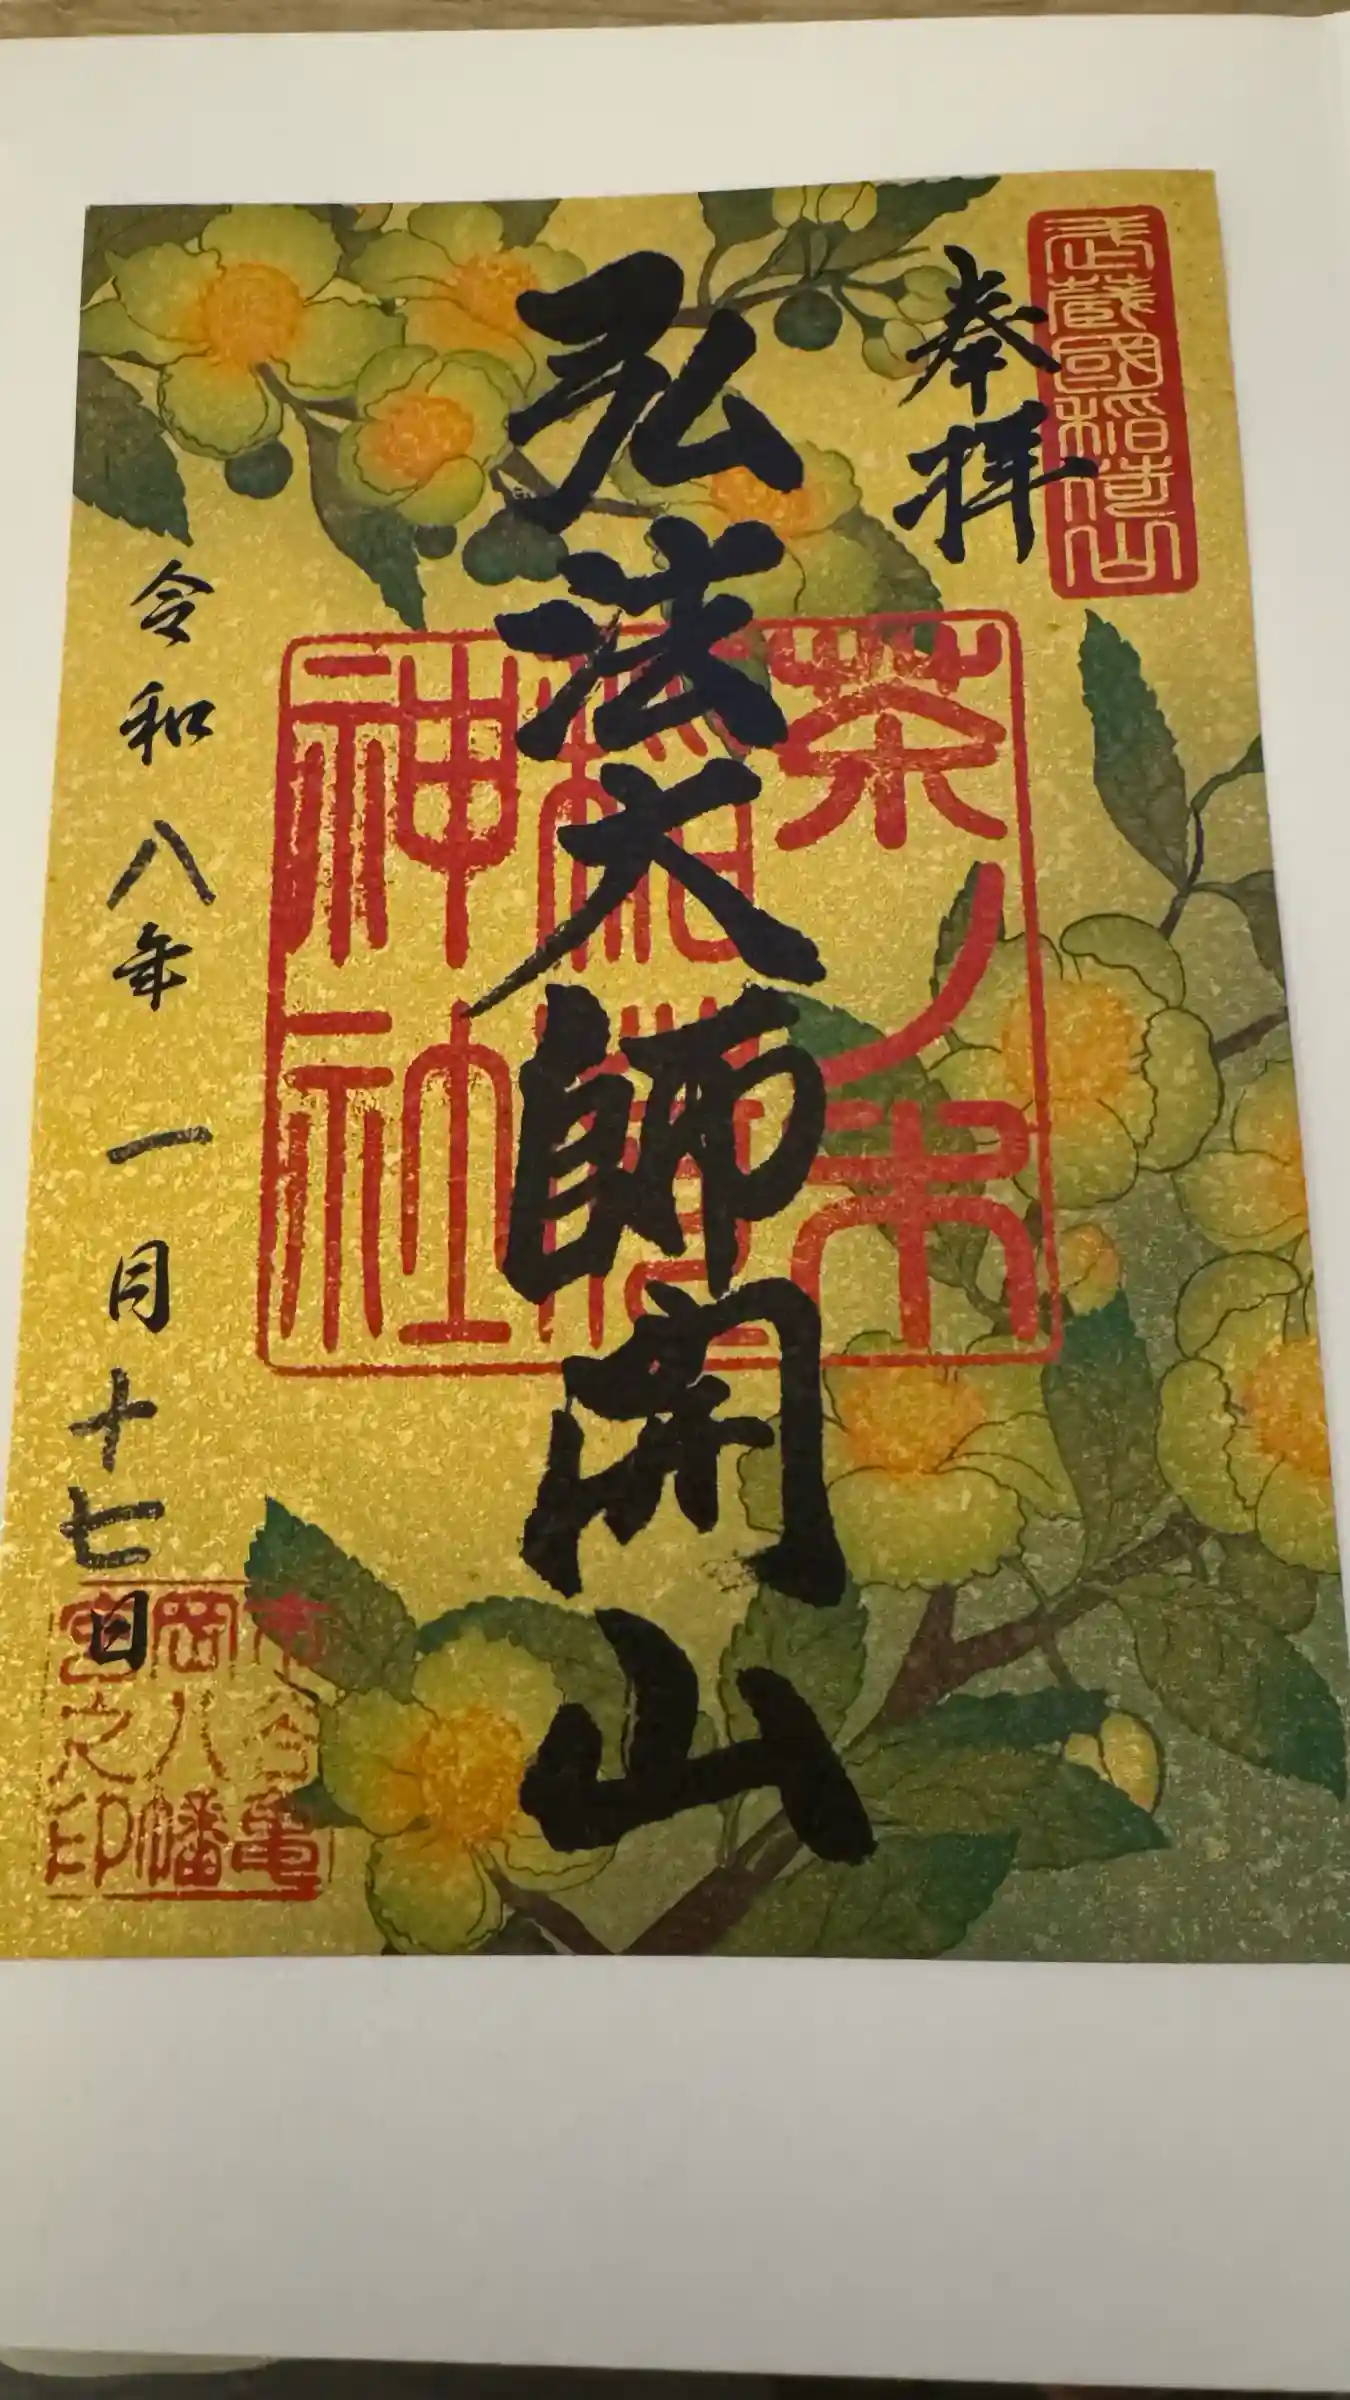 武蔵國稲荷山
奉拝
弘法大師開山
茶ノ木
稲荷
神社
令和八年一月十七日
市谷亀
岡八幡
宮之印